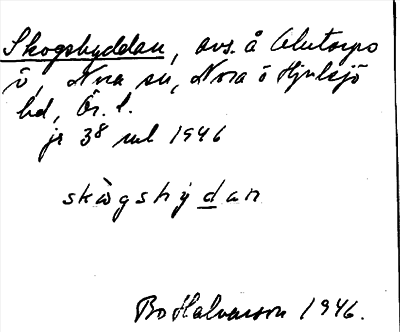 Skogshyddan, avs. å Alntorps
ö, Nora sn, Nora o Hjulsjö
hd, Ör. l.
jr 38 rul 1946
skògshydan
Bo Halvarson 1946.